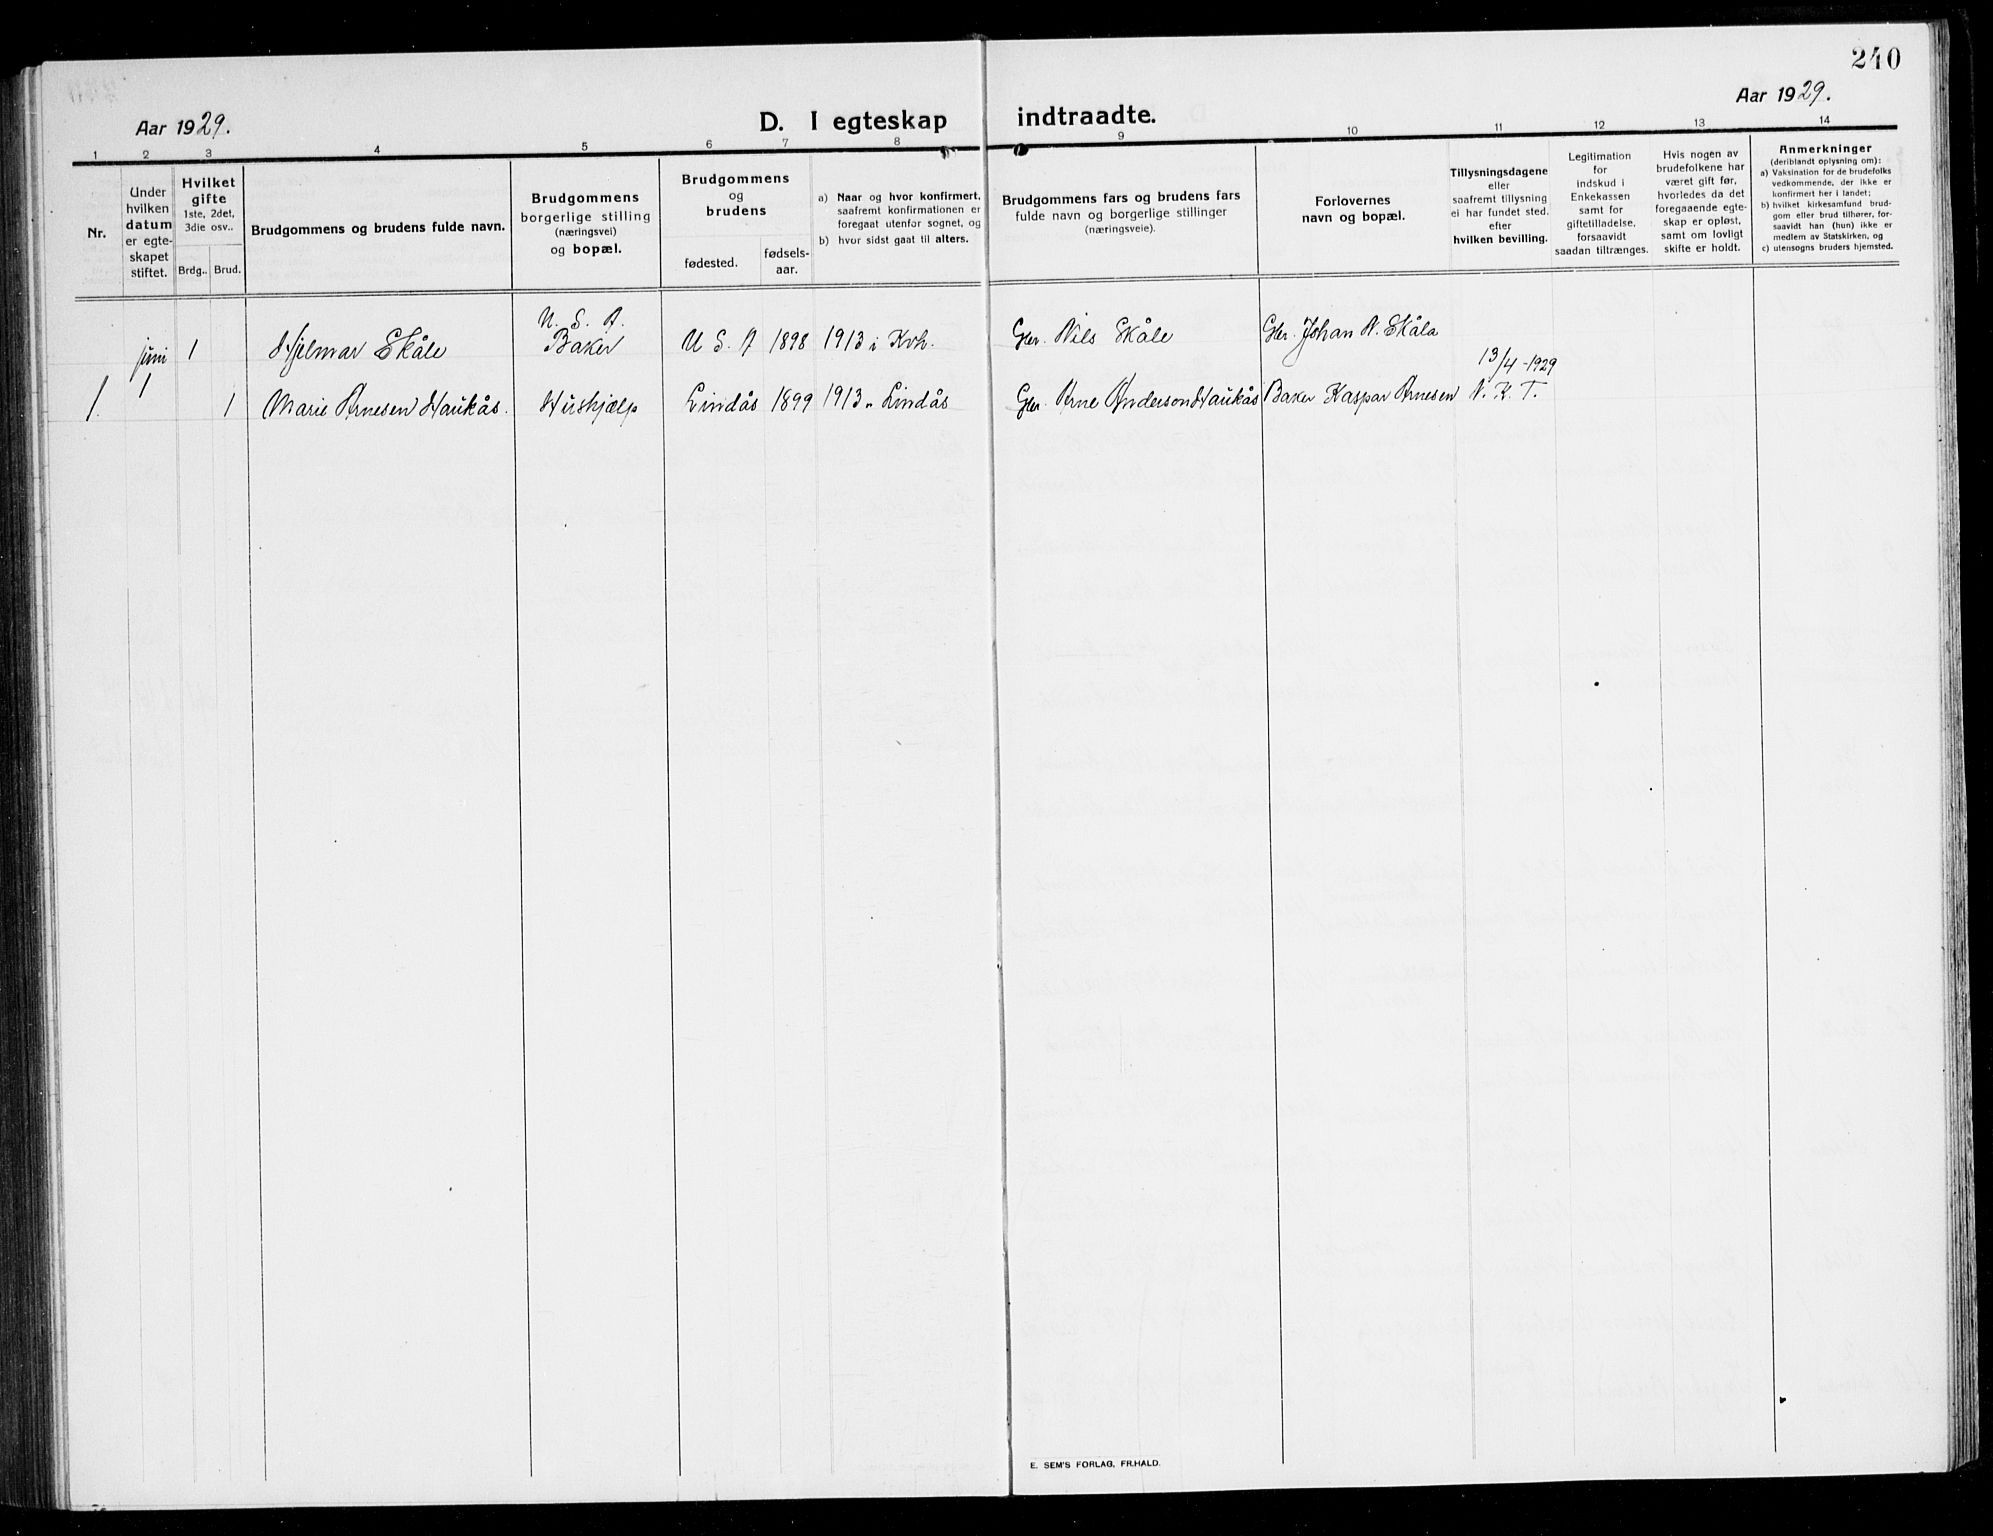 240
Aar 1929.
D. I egteskap indtraadte.
Aar 1929.
1 2 3 4 5 6 7 8 9 10 11 12 13 14
Nr.
Under
hvilken
datum
er egte-
skapet
stiftet.
Hvilket
gifte
1ste, 2det,
3die osv..
Brdg.. Brud.
Brudgommens og brudens fulde navn.
Brudgommens
borgerlige stilling
(næringsvei)
og bopæl.
Brudgommens
og
brudens
fødested.
fødsels-
aar.
a) Naar og hvor konfirmert,
saafremt konfirmationen er
foregaat utenfor sognet, og
b) hvor sidst gaat til alters.
Brudgommens fars og brudens fars
fulde navn og borgerlige stillinger
(næringsveie).
Forlovernes
navn og bopæl.
Tillysningsdagene
eller
saafremt tillysning
ei har fundet sted.
efter
hvilken bevilling.
Legitimation
for
indskud i
Enkekassen
samt for
giftetilladelse,
forsaavidt
saadan tiltrænges.
Hvis nogen av
brudefolkene har
været gift før,
hvorledes da det
foregaaende egte-
skap er opløst,
samt om lovligt
skifte er holdt.
Anmerkninger
(deriblandt oplysning om):
a) Vaksination for de brudefolks
vedkommende, der ikke er
konfirmert her i landet;
b) hvilket kirkesamfund brud-
gom eller brud tilhører, for-
saavidt han (hun) ikke er
medlem av Statskirken, og
c) utensogns bruders hjemsted.
U. S. A.
juni 1 Hjelmar Skåle Baker U S A 1898 1913 i Kvh. Gbr. Nils Skåle Gbr. Johan N. Skåla
13/4-1929
1. 1 1 Marie Arnesen Haukås. Hushjælp Lindås 1899 1913 „ Lindås Gbr. Arne Anderson Haukås Baker Kaspar Arnesen N. K. T.
E. SEM'S FORLAG, FR.HALD.